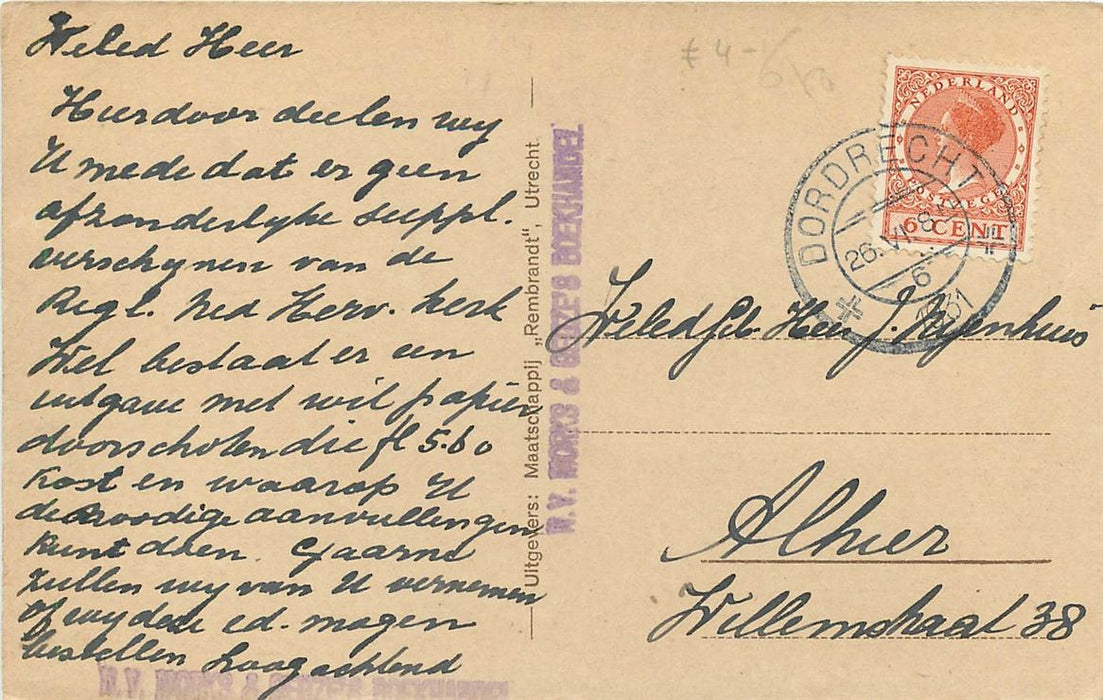 Weled Heer
Hierdoor deelen wy
U mede dat er geen
afzonderlyke suppl.
verschynen van de
Regl. Ned Herv. Kerk
Wel bestaat er een
uitgave met wit papier
doorschoten die fl 5.60
kost en waarop U
de noodige aanvullingen
kunt doen. Gaarne
zullen wy van U vernemen
of wy deze ed. mogen
bestellen Hoogachtend
N.V. MORKS & GEUZE'S BOEKHANDEL
Uitgevers: Maatschappij „Rembrandt", Utrecht.
N.V. MORKS & GEUZE'S BOEKHANDEL
NEDERLAND
POSTZEGEL
6 CENT
DORDRECHT
26.VI. 8
6
1931
WeledGeb. Heer J. Nyenhuis
Alhier
Willemstraat 38